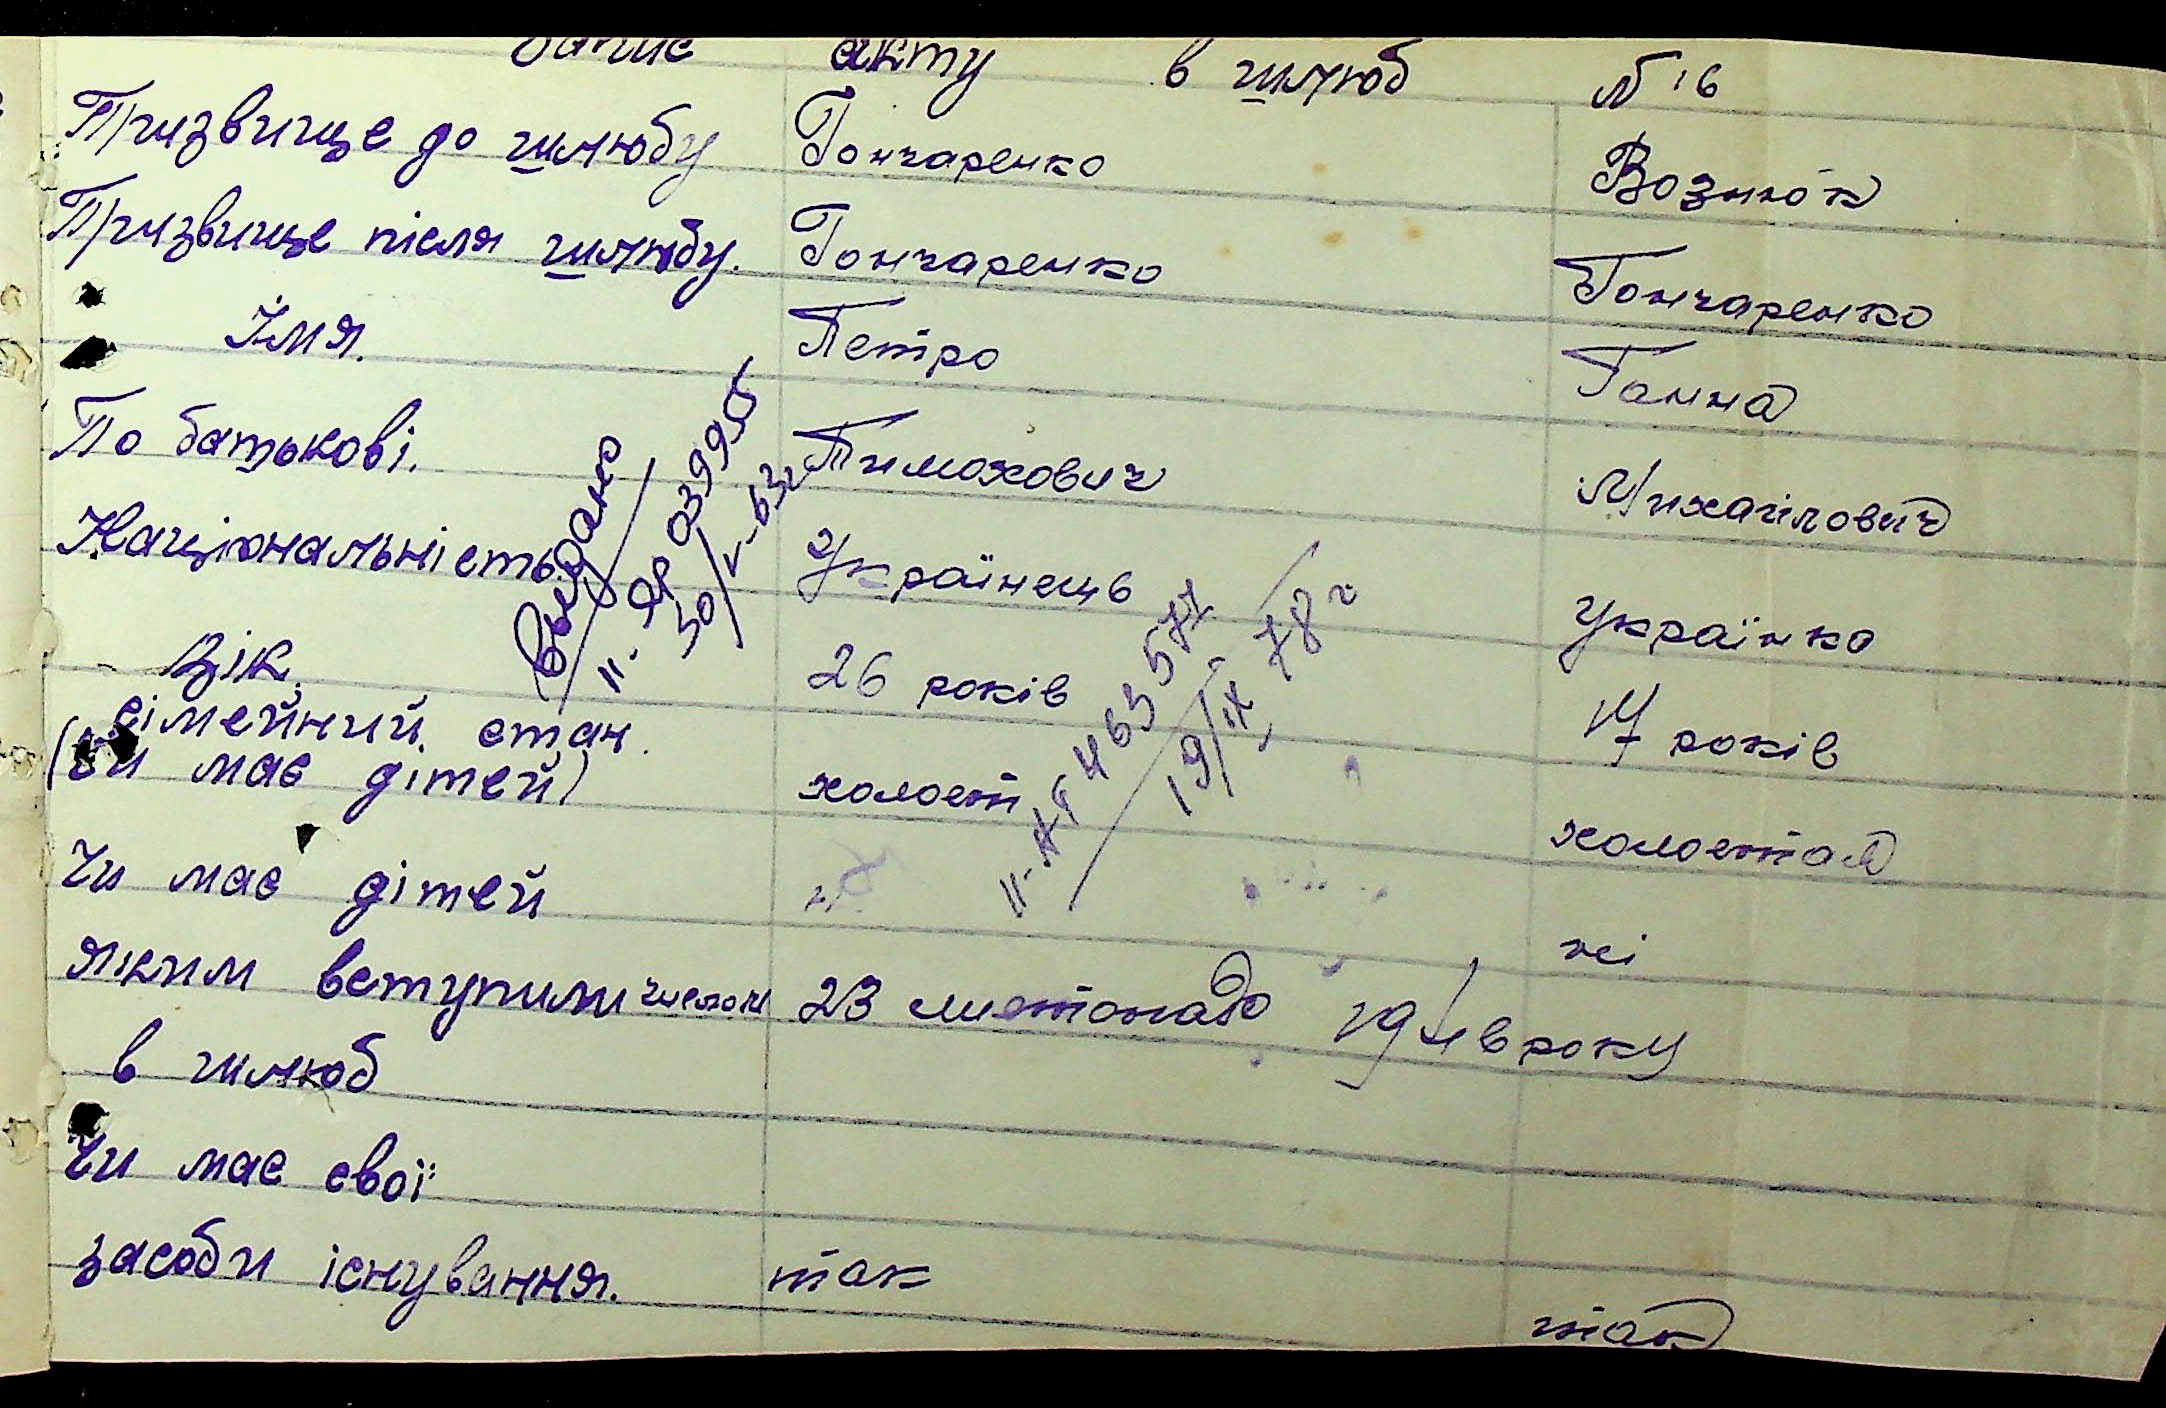 Запис акту в шлюб № 16
Призвище до шлюбу Гончаренко Вознюк
Призвище після шлюбу. Гончаренко Гончаренко
Імя. Петро Ганна
По батькові. Тимохович Михайлович
Національність. Українець Українка
Вік. 26 років 17 років
сімейний стан.
(чи має дітей) холост холостая
Чи має дітей ні. ні
яким вступили числом 23 листопада 194 року
в шлюб
Чи має свої
засоби існування. так так
Выдано
30/V-63г
19/IX 78 г